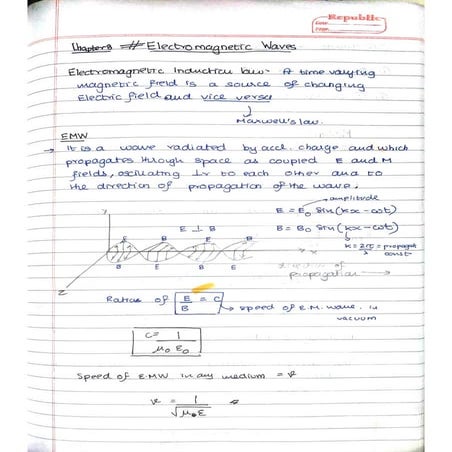 Republic
Date:
Page:
Chapter 8 # Electromagnetic Waves
Electromagnetic Induction law:- A time varying
magnetic field is a source of changing
Electric field and vice versa
Maxwell's law.
EMW
→ It is a wave radiated by accl. charge and which
propagates through space as coupled E and M
fields, oscillating ⊥r to each other and to
the direction of propagation of the wave.
amplitude
E = E₀ Sin (kx - ωt)
B = B₀ Sin (kx - ωt)
k = 2π/λ = propagat
const
E ⊥ B
Y
E B B E
B E B E
Z
of
propagation →
Ratio of E/B = c → speed of E.M. wave in
vacuum
c = 1/μ₀ε₀
Speed of EMW in any medium = v
v = 1/√μ₀ε